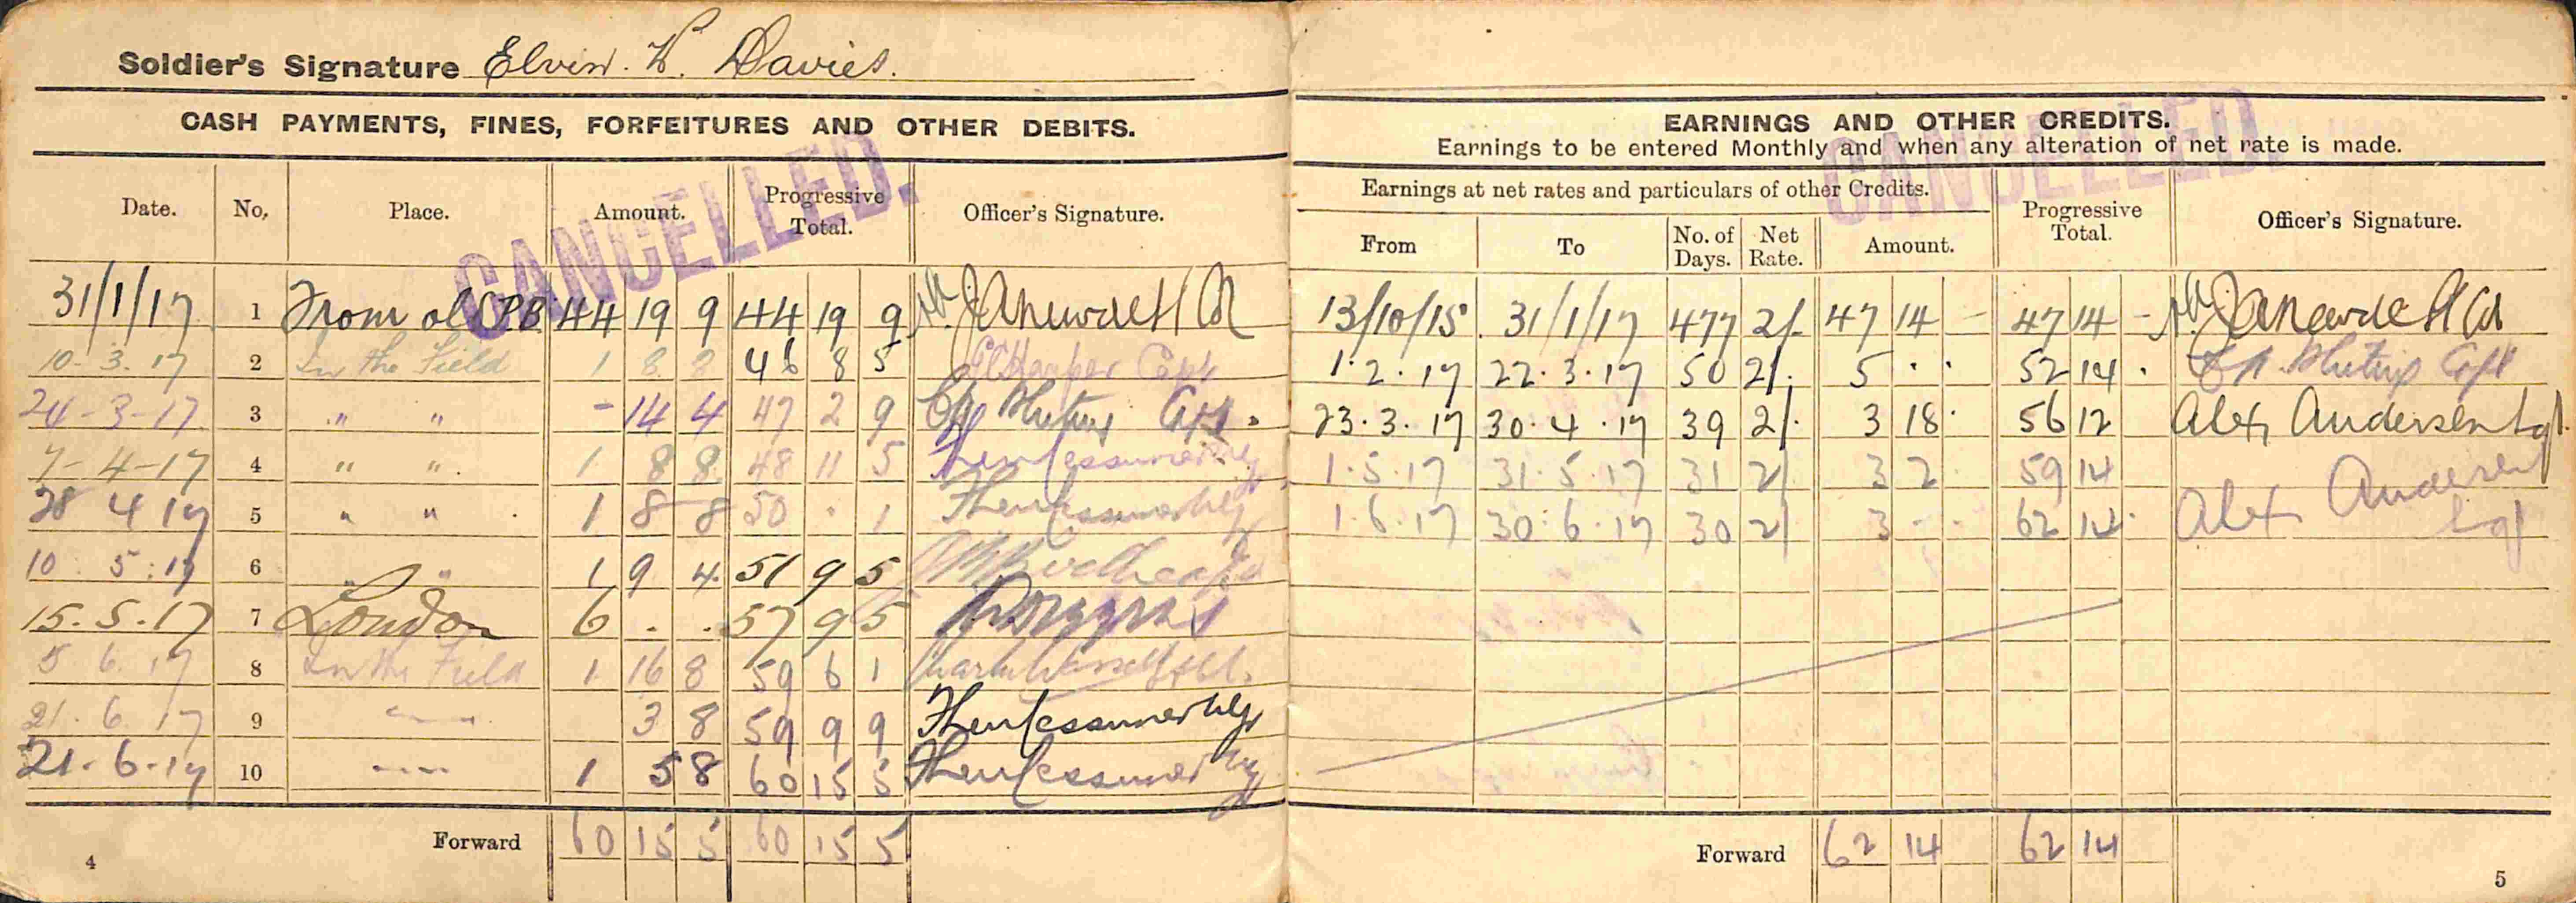 Soldier's Signature Elvin. W. Davies.
CASH PAYMENTS, FINES, FORFEITURES AND OTHER DEBITS.
CANCELLED.
Date. No, Place. Amount. Progressive Total. Officer's Signature.
31/1/17 1 From old P.B. 44 19 9 44 19 9
10. 3. 17 2 In the Field 1 8 8 46 8 5 Harper Capt
24-3-17 3 " " - 14 4 47 2 9 Capt.
7-4-17 4 " " 1 8 8 48 11 5
28 4 17 5 " " 1 8 8 50 . 1
10. 5. 17 6 " " 1 9 4 51 9 5
15. 5. 17 7 London 6 . . 57 9 5
5 6 17 8 In the Field 1 16 8 59 6 1
21. 6. 17 9 3 8 59 9 9
21. 6. 17 10 1 5 8 60 15 5
Forward 60 15 5 60 15 5
4
EARNINGS AND OTHER CREDITS.
Earnings to be entered Monthly and when any alteration of net rate is made.
CANCELLED.
Earnings at net rates and particulars of other Credits. Progressive Total. Officer's Signature.
From To No. of Days. Net Rate. Amount.
13/10/15 31/1/17 477 2/- 47 14 - 47 14 -
1. 2. 17 22. 3. 17 50 2/. 5 . . 52 14 . Capt
23. 3. 17 30. 4. 17 39 2/. 3 18 . 56 12 Alex Andersen
1. 5. 17 31. 5. 17 31 2/ 3 2 59 14
1. 6. 17 30. 6. 17 30 2/ 3 - - 62 14 . Alex Andersen
Forward 62 14 62 14
5